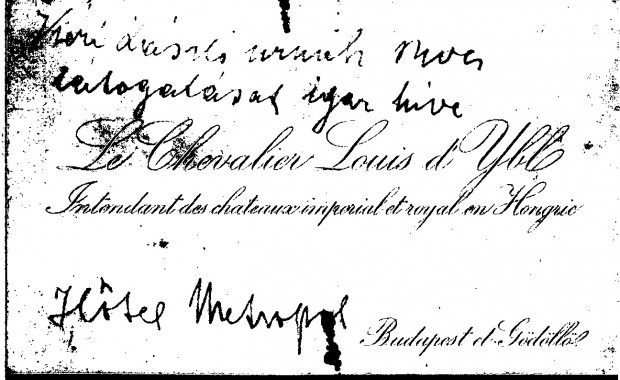 Kéri László urnak
látogatását igaz hive
Le Chevalier Louis d'Ybl
Intendant des chateaux imperial et royal en Hongrie
Hôtel Metropol
Budapest et Gödöllő.